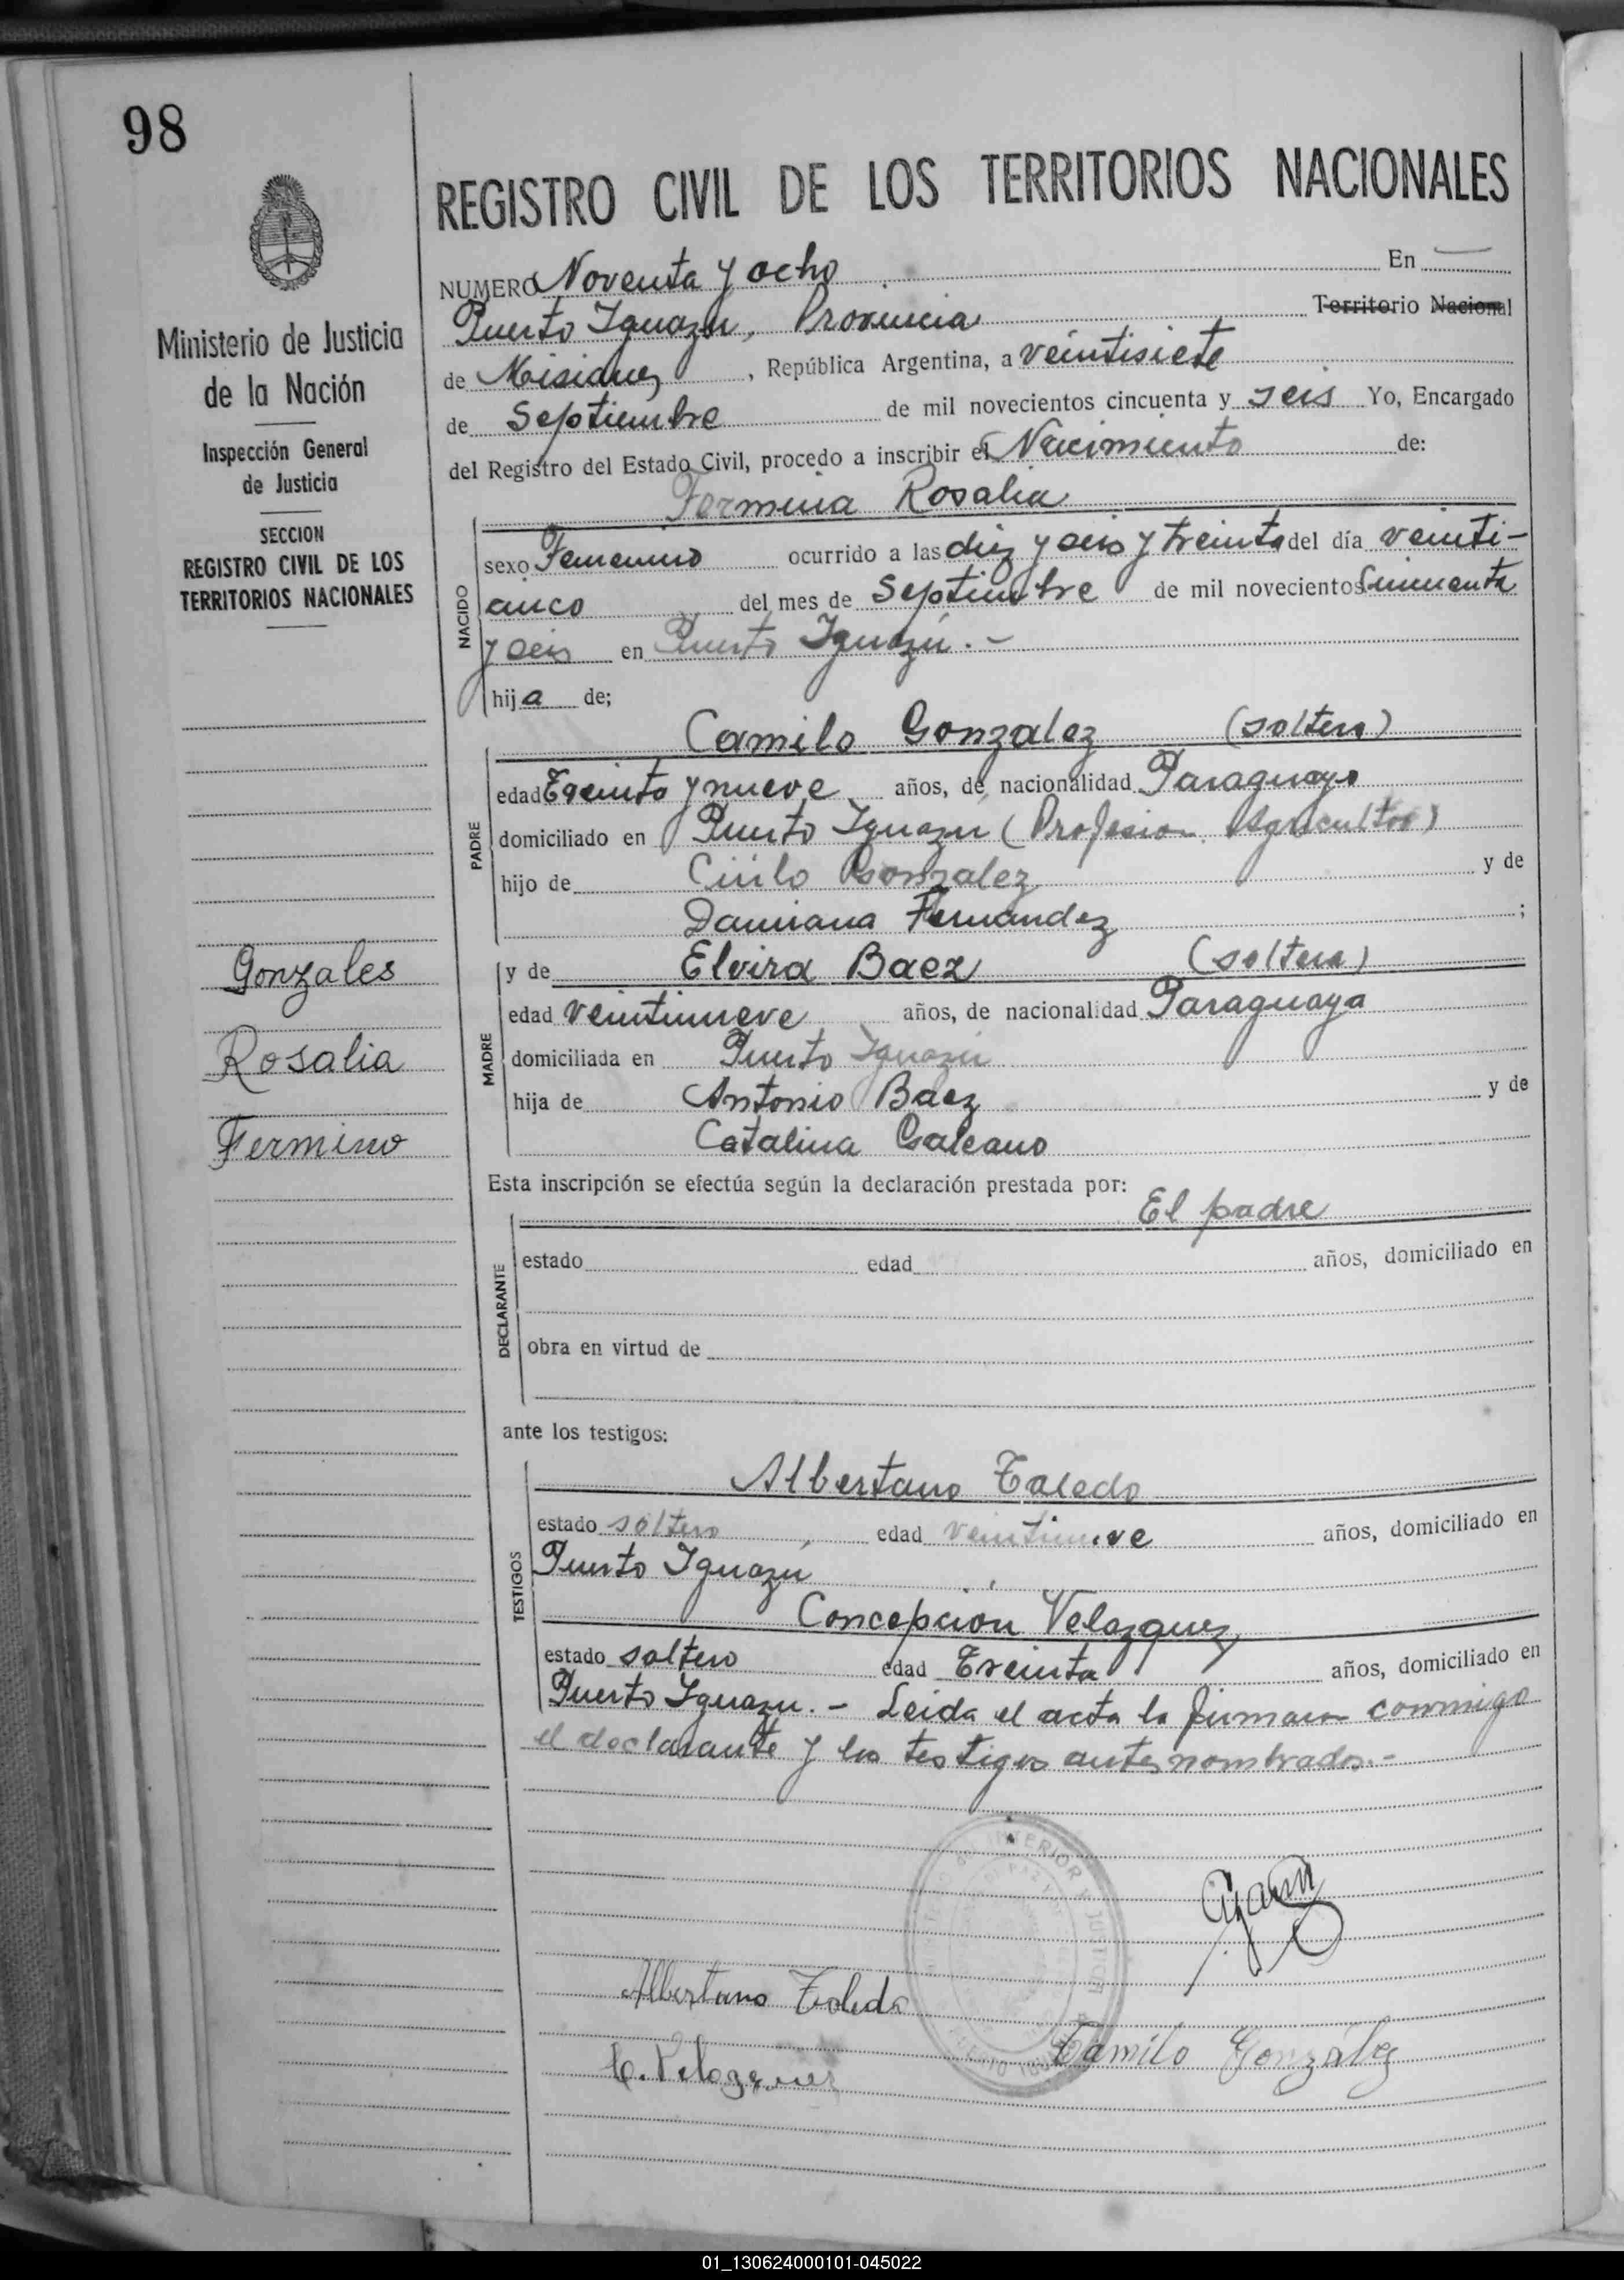 98
Ministerio de Justicia
de la Nación
Inspección General
de Justicia
SECCION
REGISTRO CIVIL DE LOS
TERRITORIOS NACIONALES
Gonzales
Rosalia
Fermino
REGISTRO CIVIL DE LOS TERRITORIOS NACIONALES
NUMERO Noventa y ocho En
Puerto Iguazú, Provincia Territorio Nacional
de Misiones, República Argentina, a veintisiete
de Septiembre de mil novecientos cincuenta y seis Yo, Encargado
del Registro del Estado Civil, procedo a inscribir el Nacimiento de:
Fermina Rosalia
NACIDO
sexo Femenino ocurrido a las diez y seis y treinta del día veinti-
cinco del mes de Septiembre de mil novecientos cincuenta
y seis en Puerto Iguazú.-
hija de;
Camilo Gonzalez (soltero)
PADRE
edad Treinta y nueve años, de nacionalidad Paraguayo
domiciliado en Puerto Iguazu (Profesion Agricultor)
hijo de Cirilo Gonzalez y de
Damiana Fernandez;
MADRE
y de Elvira Baez (soltera)
edad veintinueve años, de nacionalidad Paraguaya
domiciliada en Puerto Iguazú
hija de Antonio Baez y de
Catalina Galeano
Esta inscripción se efectúa según la declaración prestada por:
El padre
DECLARANTE
estado edad años, domiciliado en
obra en virtud de
ante los testigos:
Albertano Toledo
TESTIGOS
estado soltero, edad veintinueve años, domiciliado en
Puerto Iguazú
Concepcion Velazquez
estado soltero edad Treinta años, domiciliado en
Puerto Iguazu.- Leida el acta la firman conmigo
el declarante y los testigos antes nombrados.-
INTERIOR Y JUSTICIA
Albertano Toledo
Camilo González
C. Velazquez
01_130624000101-045022